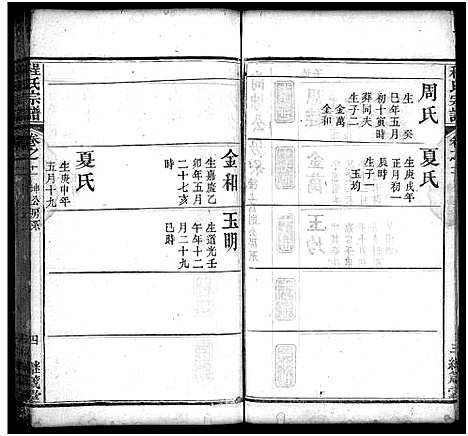 程氏宗譜
周氏
生癸
巳年五月
初十寅時
葬同夫
生子二
金萬
金和
夏氏
生庚戌年
正月初一
辰時
生子一
玉均
金和
生嘉慶乙
卯年五月
二十七亥
時
玉明
生道光壬
午年十二
月二十九
巳時
夏氏
生庚申年
五月十九
程氏宗譜
卷之十一
坤公房系
四